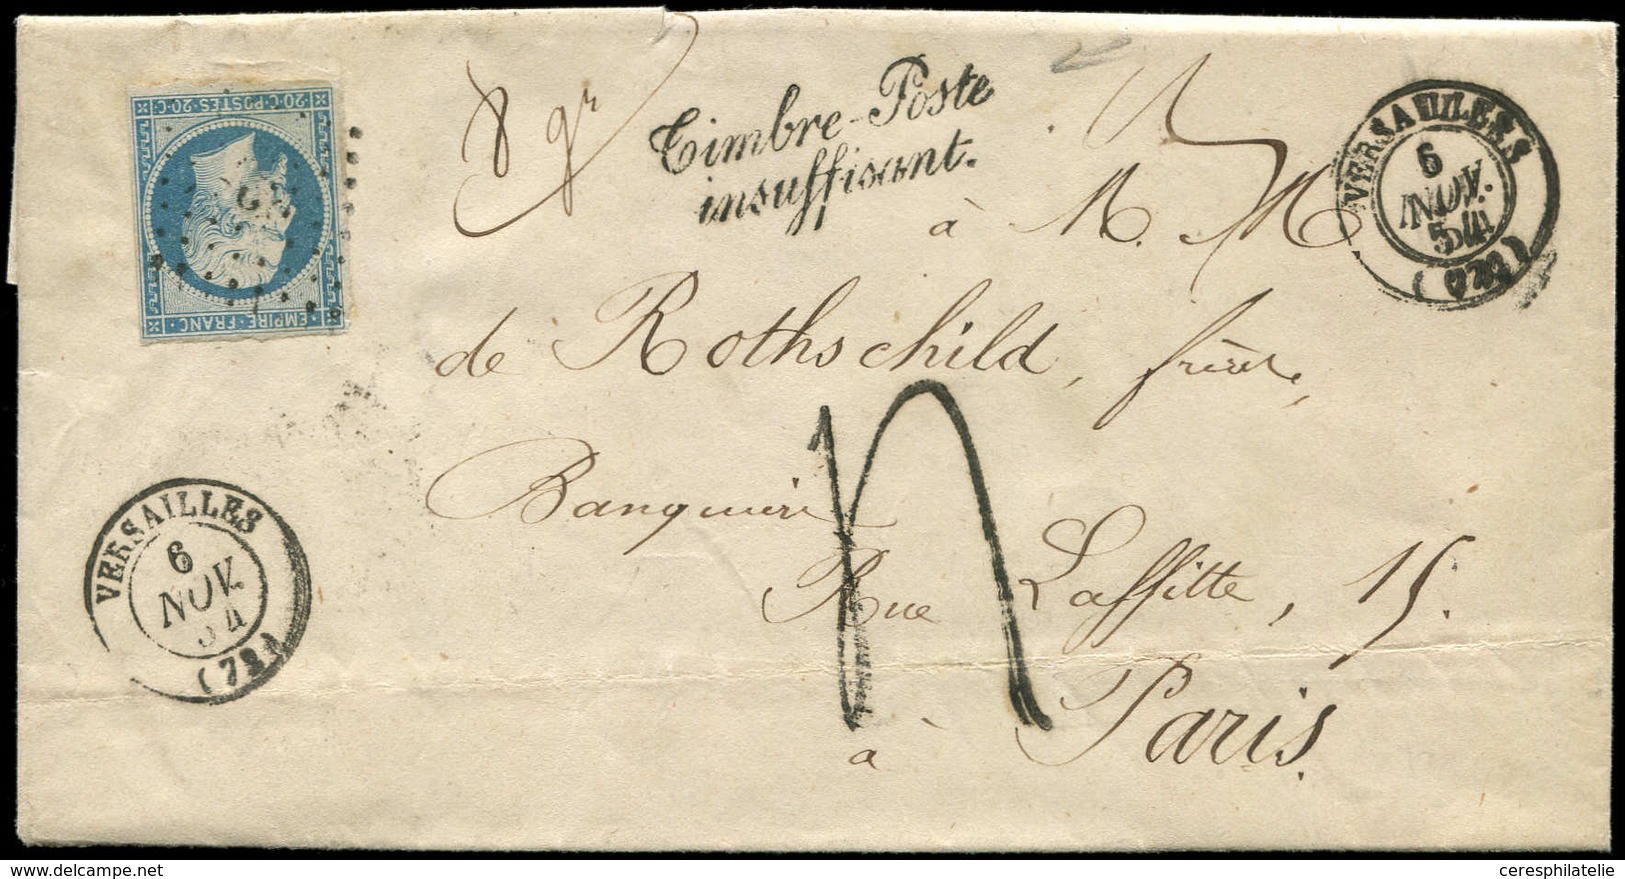 20·C·POSTES·20·C
EMPIRE·FRANC·
8 gr
Timbre-Poste
insuffisant.
VERSAILLES
6
NOV.
54
(72)
à M. M
de Rothschild, frères,
Banquiers
Rue Laffitte, 15.
à Paris.
VERSAILLES
6
NOV.
54
(72)
www.delcampe.net
ceresphilatelie